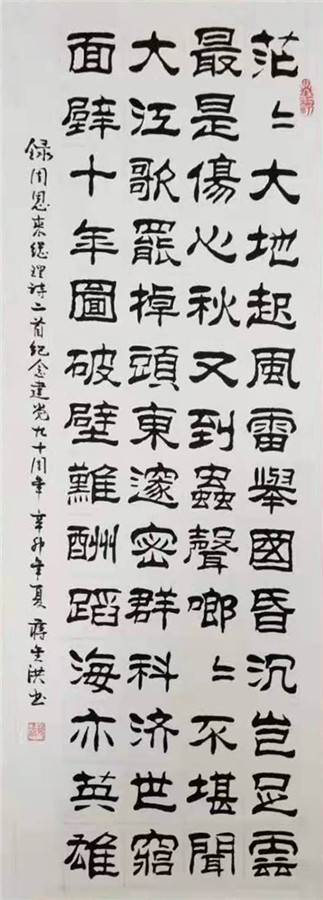 茫々大地起風雷舉國昏沉豈足雲
最是傷心秋又到蟲聲唧々不堪聞
大江歌罷掉頭東邃密群科济世窮
面壁十年圖破壁難酬蹈海亦英雄
録周恩来總理詩二首紀念建党九十周年 辛卯年夏 蒋洪书